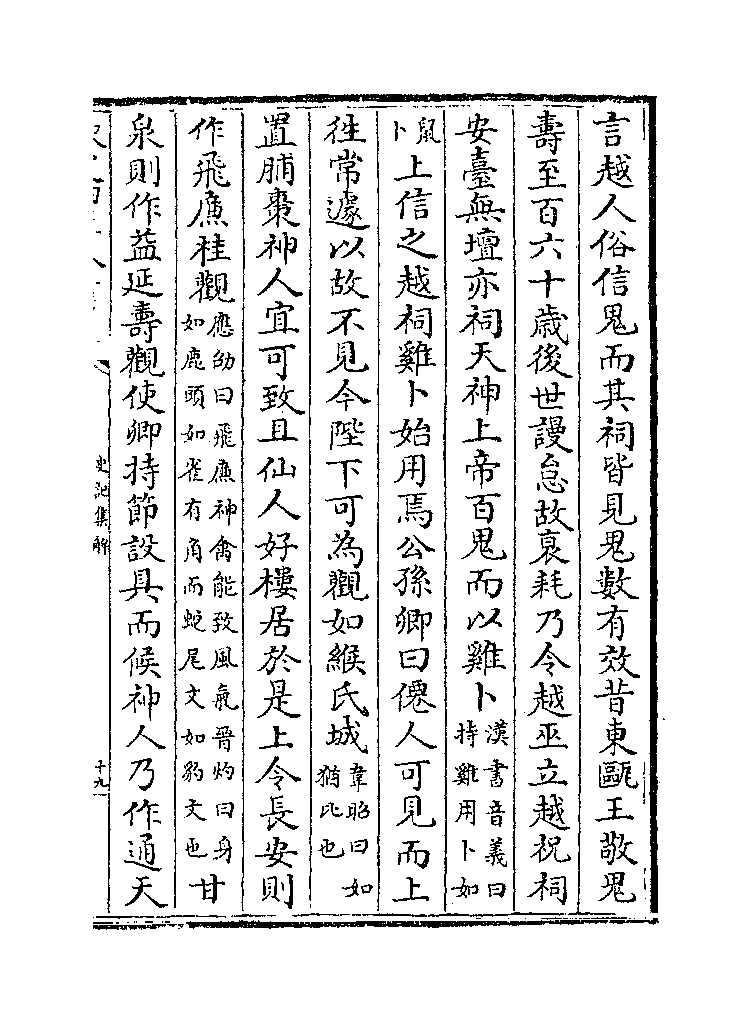 言越人俗信鬼而其祠皆見鬼數有效昔東甌王敬鬼
壽至百六十歲後世謾怠故衰耗乃令越巫立越祝祠
安臺無壇亦祠天神上帝百鬼而以雞卜漢書音義曰持雞用卜如
鼠卜上信之越祠雞卜始用焉公孫卿曰僊人可見而上
徃常遽以故不見今陛下可為觀如緱氏城韋昭曰如猶比也
置脯棗神人宜可致且仙人好樓居於是上令長安則
作飛廉桂觀應劭曰飛廉神禽能致風氣晉灼曰身如鹿頭如雀有角而蛇尾文如豹文也甘
泉則作益延壽觀使卿持節設具而候神人乃作通天
史記集解
十九